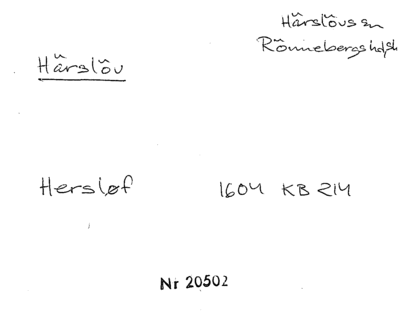 Härslövs sn
Rönnebergs hd, sk
Härslöv
Hersløf 1604 KB 214
Nr 20502